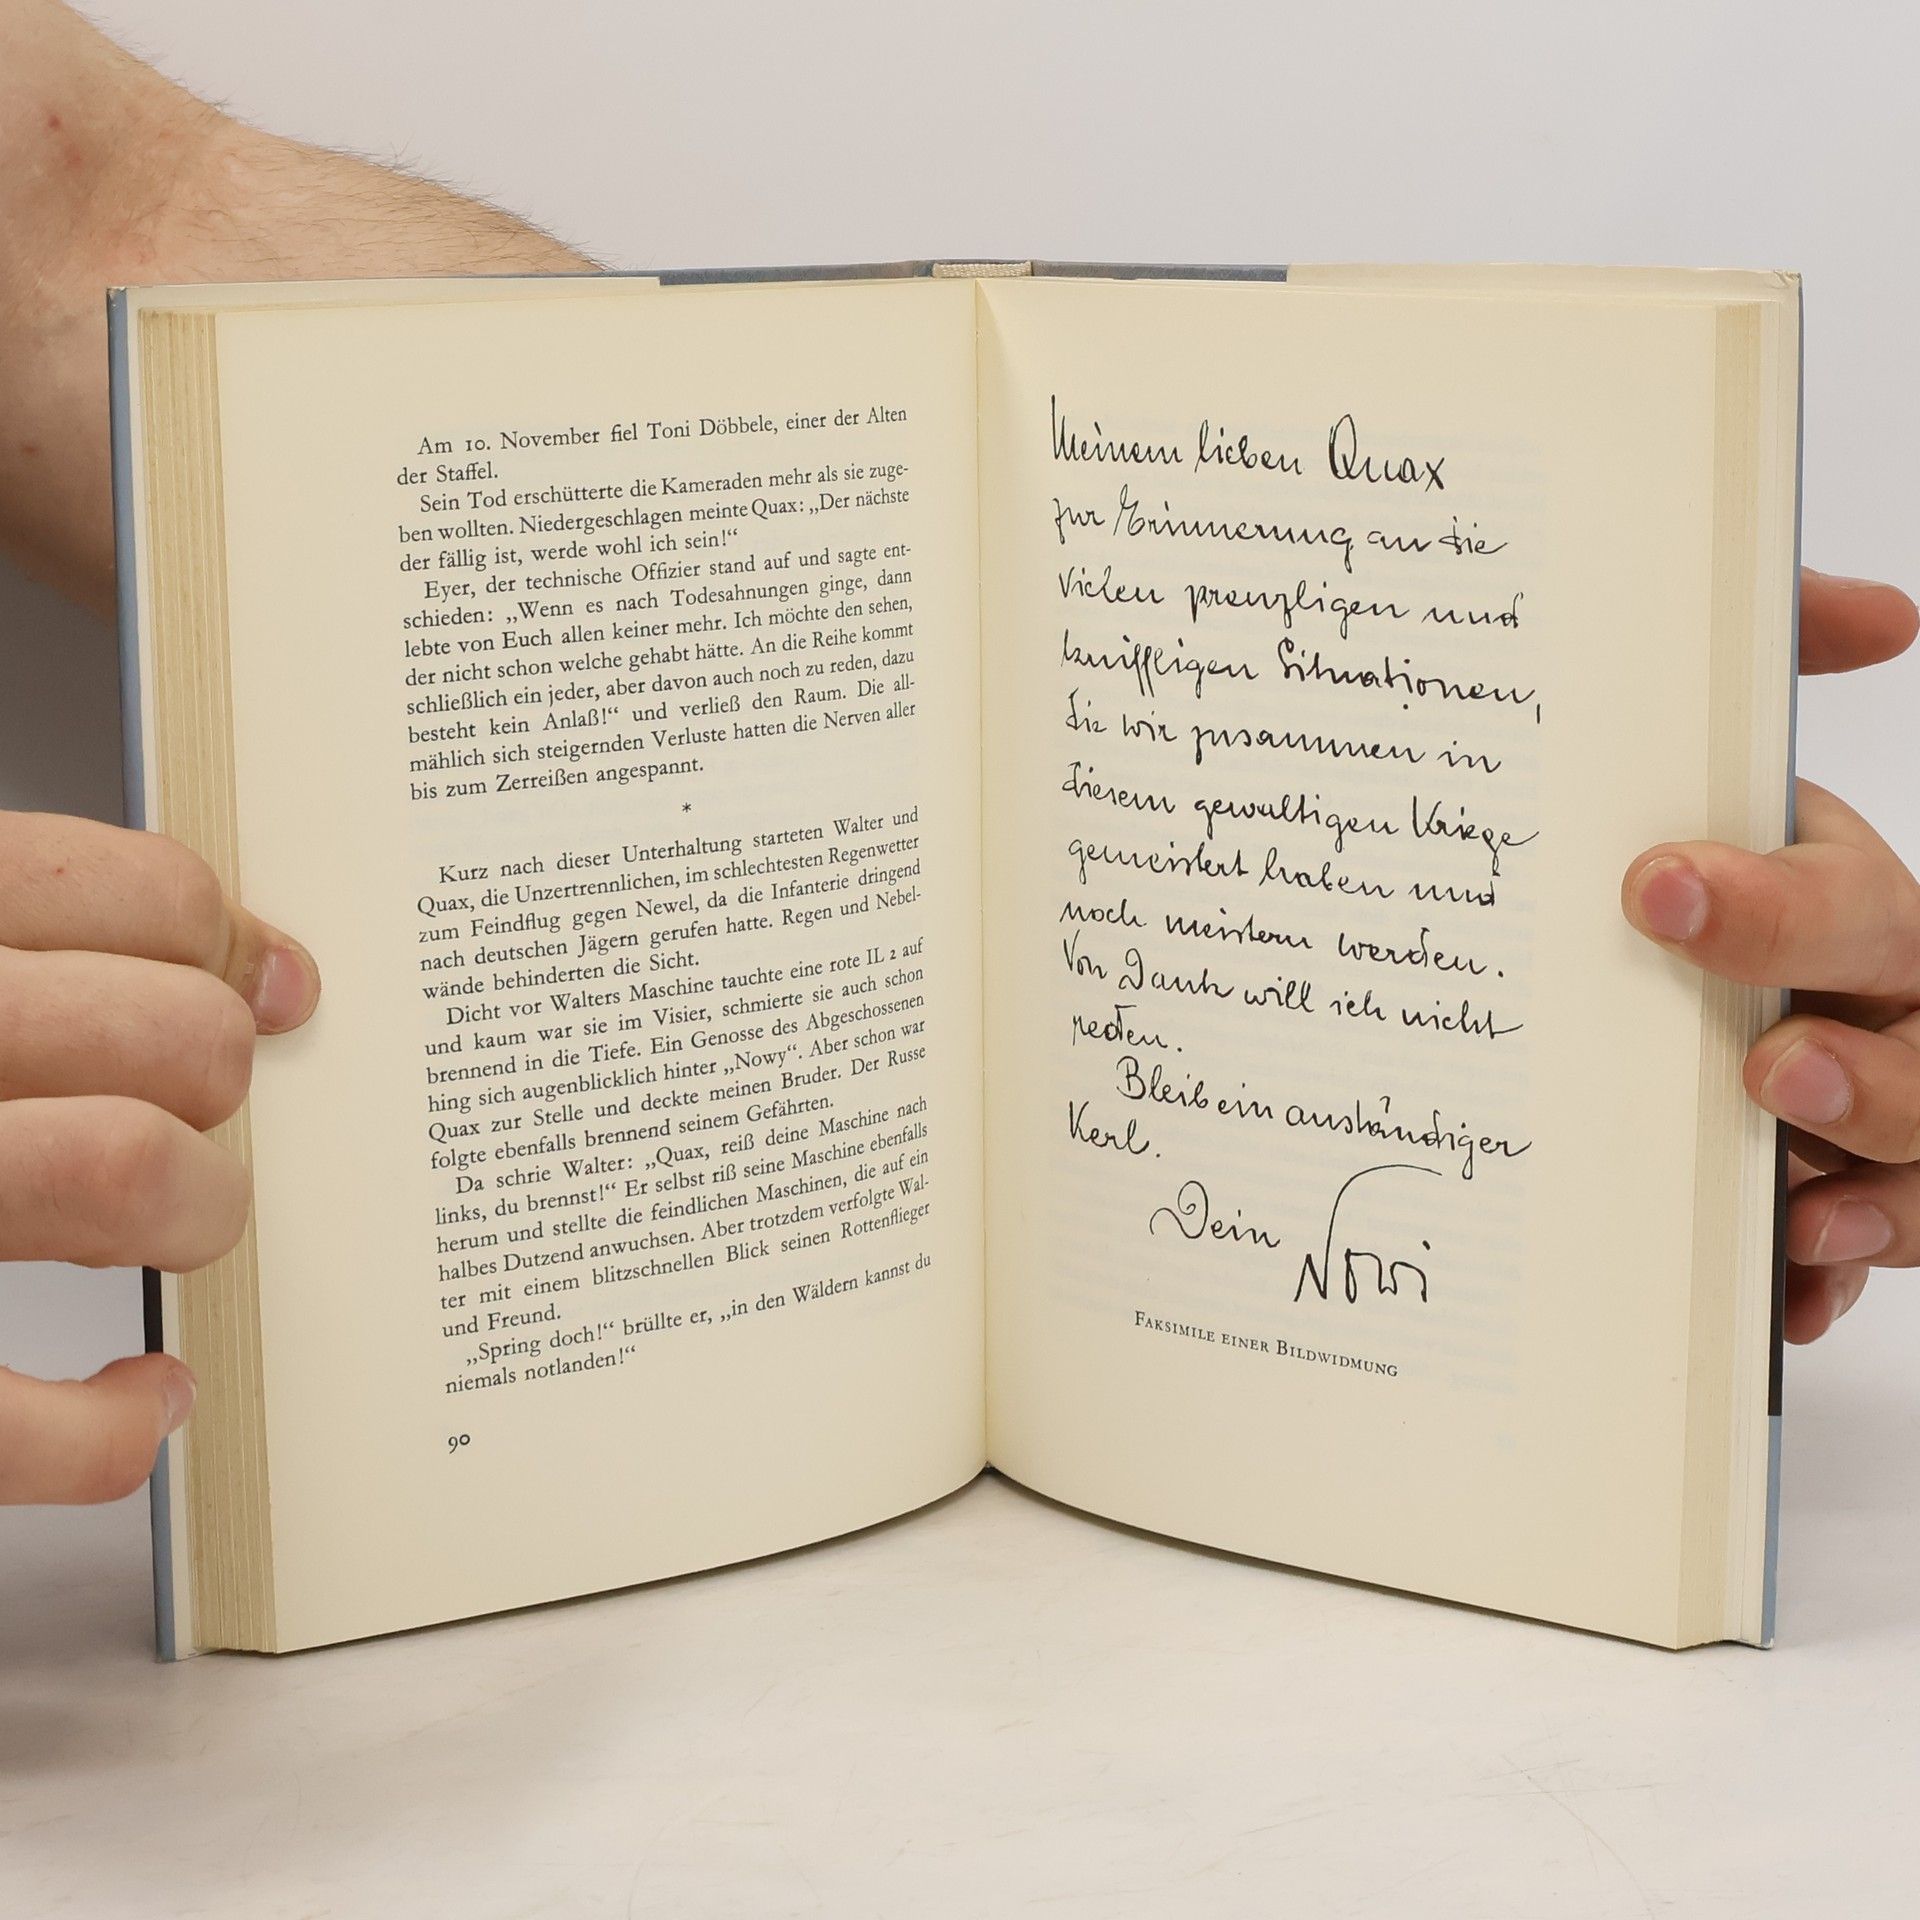 Am 10. November fiel Toni Döbbele, einer der Alten
der Staffel.
Sein Tod erschütterte die Kameraden mehr als sie zuge-
ben wollten. Niedergeschlagen meinte Quax: „Der nächste
der fällig ist, werde wohl ich sein!“
Eyer, der technische Offizier stand auf und sagte ent-
schieden: „Wenn es nach Todesahnungen ginge, dann
lebte von Euch allen keiner mehr. Ich möchte den sehen,
der nicht schon welche gehabt hätte. An die Reihe kommt
schließlich ein jeder, aber davon auch noch zu reden, dazu
besteht kein Anlaß!“ und verließ den Raum. Die all-
mählich sich steigernden Verluste hatten die Nerven aller
bis zum Zerreißen angespannt.
*
Kurz nach dieser Unterhaltung starteten Walter und
Quax, die Unzertrennlichen, im schlechtesten Regenwetter
zum Feindflug gegen Newel, da die Infanterie dringend
nach deutschen Jägern gerufen hatte. Regen und Nebel-
wände behinderten die Sicht.
Dicht vor Walters Maschine tauchte eine rote IL 2 auf
und kaum war sie im Visier, schmierte sie auch schon
brennend in die Tiefe. Ein Genosse des Abgeschossenen
hing sich augenblicklich hinter „Nowy“. Aber schon war
Quax zur Stelle und deckte meinen Bruder. Der Russe
folgte ebenfalls brennend seinem Gefährten.
Da schrie Walter: „Quax, reiß deine Maschine nach
links, du brennst!“ Er selbst riß seine Maschine ebenfalls
herum und stellte die feindlichen Maschinen, die auf ein
halbes Dutzend anwuchsen. Aber trotzdem verfolgte Wal-
ter mit einem blitzschnellen Blick seinen Rottenflieger
und Freund.
„Spring doch!“ brüllte er, „in den Wäldern kannst du
niemals notlanden!“
90
Meinem lieben Quax
zur Erinnerung an die
vielen prenzligen und
kniffligen Situationen,
die wir zusammen in
diesem gewaltigen Kriege
gemeistert haben und
noch meistern werden.
Von Dank will ich nicht
reden.
Bleib ein anständiger
Kerl.
Dein Nowi
Faksimile einer Bildwidmung